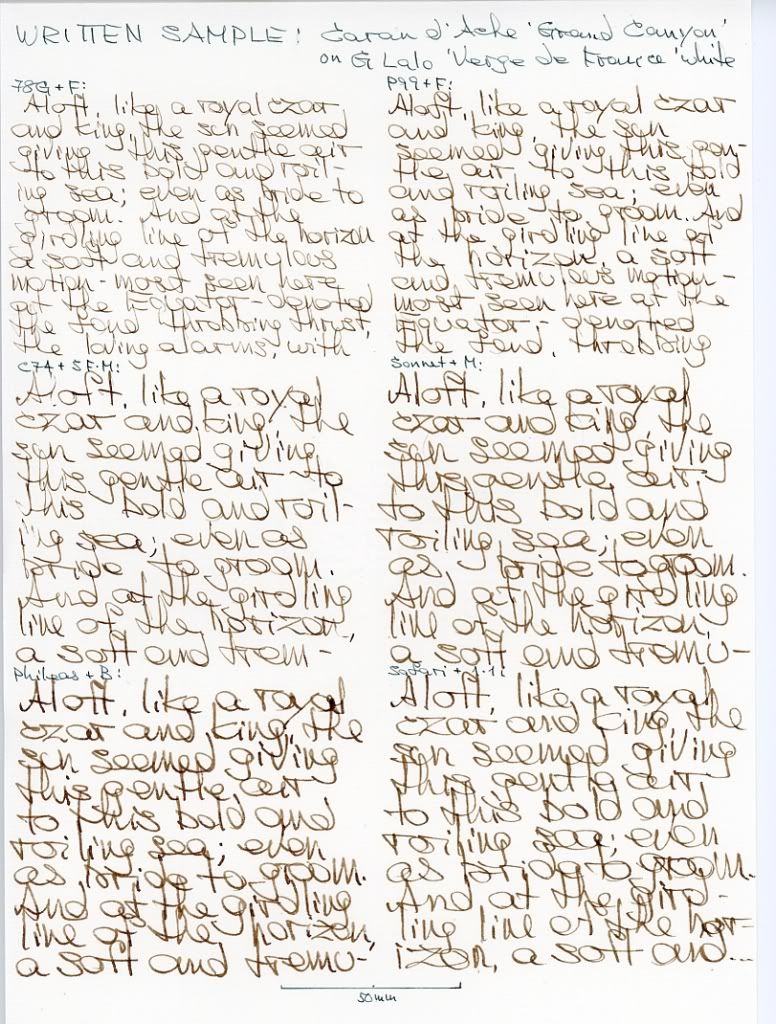 WRITTEN SAMPLE: Caran d'Ache 'Grand Canyon'
on G Lalo 'Verge de France' white
78G + F:
Aloft, like a royal czar
and king, the sun seemed
giving this gentle air
to this bold and roil-
ing sea; even as bride to
groom. And at the
girdling line of the horizon
a soft and tremulous
motion - most seen here
at the Equator - denoted
the fond throbbing thrust,
the loving alarms, with
P99 + F:
Aloft, like a royal czar
and king, the sun
seemed giving this gen-
tle air to this bold
and roiling sea; even
as bride to groom. And
at the girdling line of
the horizon, a soft
and tremulous motion -
most seen here at the
Equator, - denoted
the fond, throbbing
C74 + SF-M:
Aloft, like a royal
czar and king, the
sun seemed giving
this gentle air to
this bold and roil-
ing sea; even as
bride to groom.
And at the girdling
line of the horizon,
a soft and trem-
Sonnet + M:
Aloft, like a royal
czar and king, the
sun seemed giving
this gentle air,
to this bold and
roiling sea; even
as bride to groom.
And at the girdling
line of the horizon,
a soft and tremu-
Phileas + B:
Aloft, like a royal
czar and king, the
sun seemed giving
this gentle air
to this bold and
roiling sea; even
as bride to groom.
And at the girdling
line of the horizon,
a soft and tremu-
Safari + 1.1:
Aloft, like a royal
czar and king, the
sun seemed giving
this gentle air,
to this bold and
roiling sea; even
as bride to groom.
And at the gird-
ling line of the hor-
izon, a soft and...
50mm